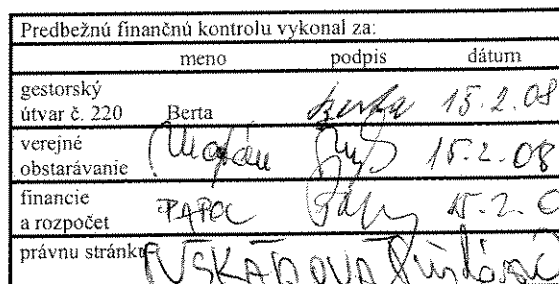 Predbežnú finančnú kontrolu vykonal za:
meno podpis dátum
gestorský
útvar č. 220 Berta Berta 15.2.08
verejné
obstarávanie 15.2.08
financie
a rozpočet 15.2.
právnu stránku